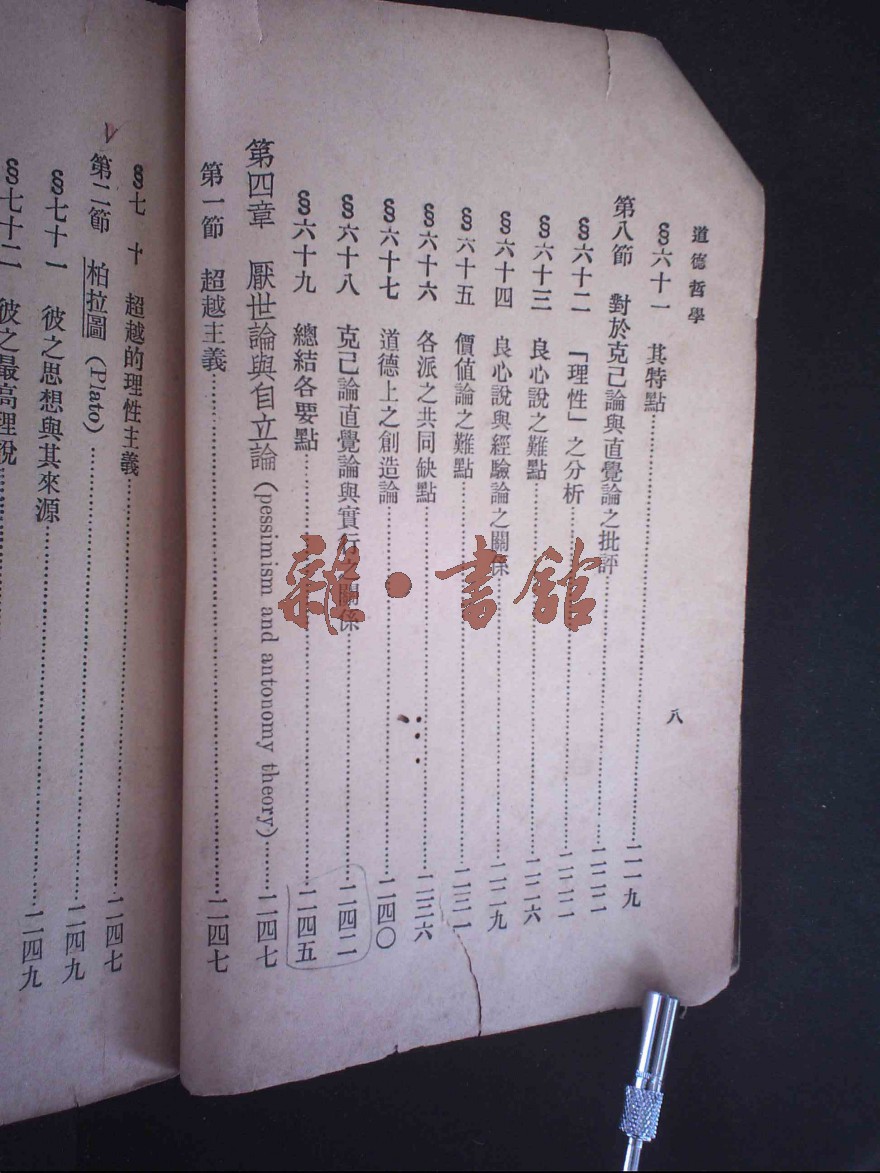 道德哲學
八
§六十一 其特點……二一九
第八節 對於克己論與直覺論之批評……二二二
§六十二 「理性」之分析……二二二
§六十三 良心說之難點……二二六
§六十四 良心說與經驗論之關係……二二九
§六十五 價値論之難點……二三一
§六十六 各派之共同缺點……二三六
§六十七 道德上之創造論……二四〇
§六十八 克己論直覺論與實行之關係……二四二
§六十九 總結各要點……二四五
第四章 厭世論與自立論（pessimism and antonomy theory）……二四七
第一節 超越主義……二四七
§七十 超越的理性主義……二四七
第二節 柏拉圖（Plato）……二四九
§七十一 彼之思想與其來源……二四九
§七十二 彼之最高理說……
雜·書館